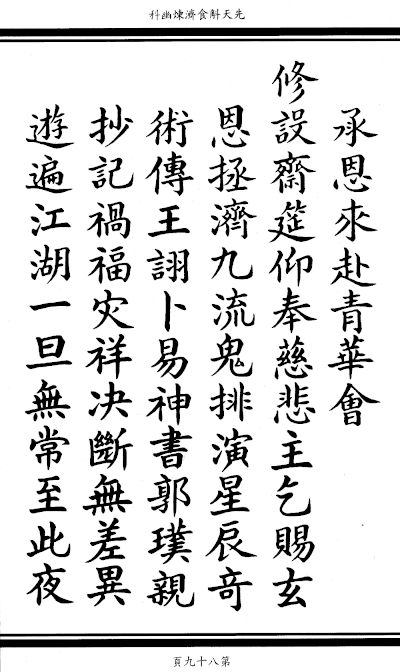 先天斛食濟煉幽科
承恩來赴青華會
修設齋筵仰奉慈悲主乞賜玄
恩拯濟九流鬼排演星辰竒
術傳王詡卜易神書郭璞親
抄記禍福灾祥决斷無差異
遊遍江湖一旦無常至此夜
第八十九頁